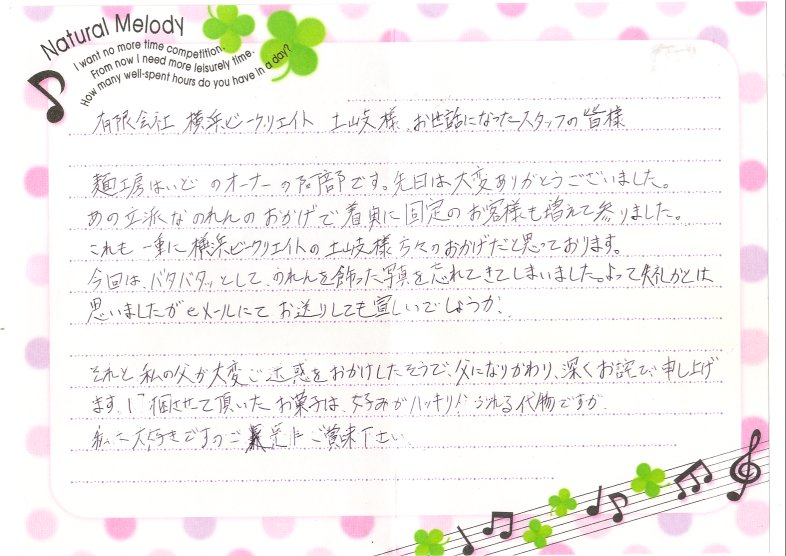 Natural Melody
I want no more time competition.
From now I need more leisurely time.
How many well-spent hours do you have in a day?
有限会社 横浜ビークリエイト 土山支様、お世話になったスタッフの皆様
麺工房はいど のオーナーの阿部です。先日は大変ありがとうございました。
あの立派な のれんの おかげで、着実に固定の お客様も増えて参りました。
これも 一重に 横浜ビークリエイトの 土山支様 方々のおかげだと思っております。
今回は、バタバタッとして、のれんを飾った写真を忘れてきてしまいました。よって失礼かとは
思いましたが eメールにて お送りしても宜しいでしょうか。
それと 私の父が大変ご迷惑をおかけしたそうで、父になりかわり、深くお詫び、申し上げ
ます。させて頂いた お菓子は、好みがハッキリ 代物ですが
私は大好きですので ご賞味下さい